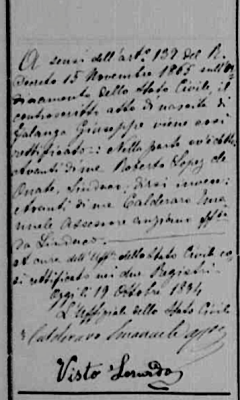 A sensi dell'art.º 139 del R.
Decreto 15 Novembre 1865 sull'or
dinamento dello Stato Civile, il
controscritto atto di nascita di
Galanga Giuseppe viene così
rettificato: Nella parte ov'è detto
Avanti di me Roberto Lopez de
Onate, Sindaco, dirsi invece:
Avanti di me Calderaro Ema
nuele Assessore anziano ff.
da Sindaco.
A cura dell'Uff. dello Stato Civile co
sì rettificato nei due Registri
Oggi li 19 Ottobre 1894
L'Uffiziale dello Stato Civile
Calderaro Emanuele
Visto